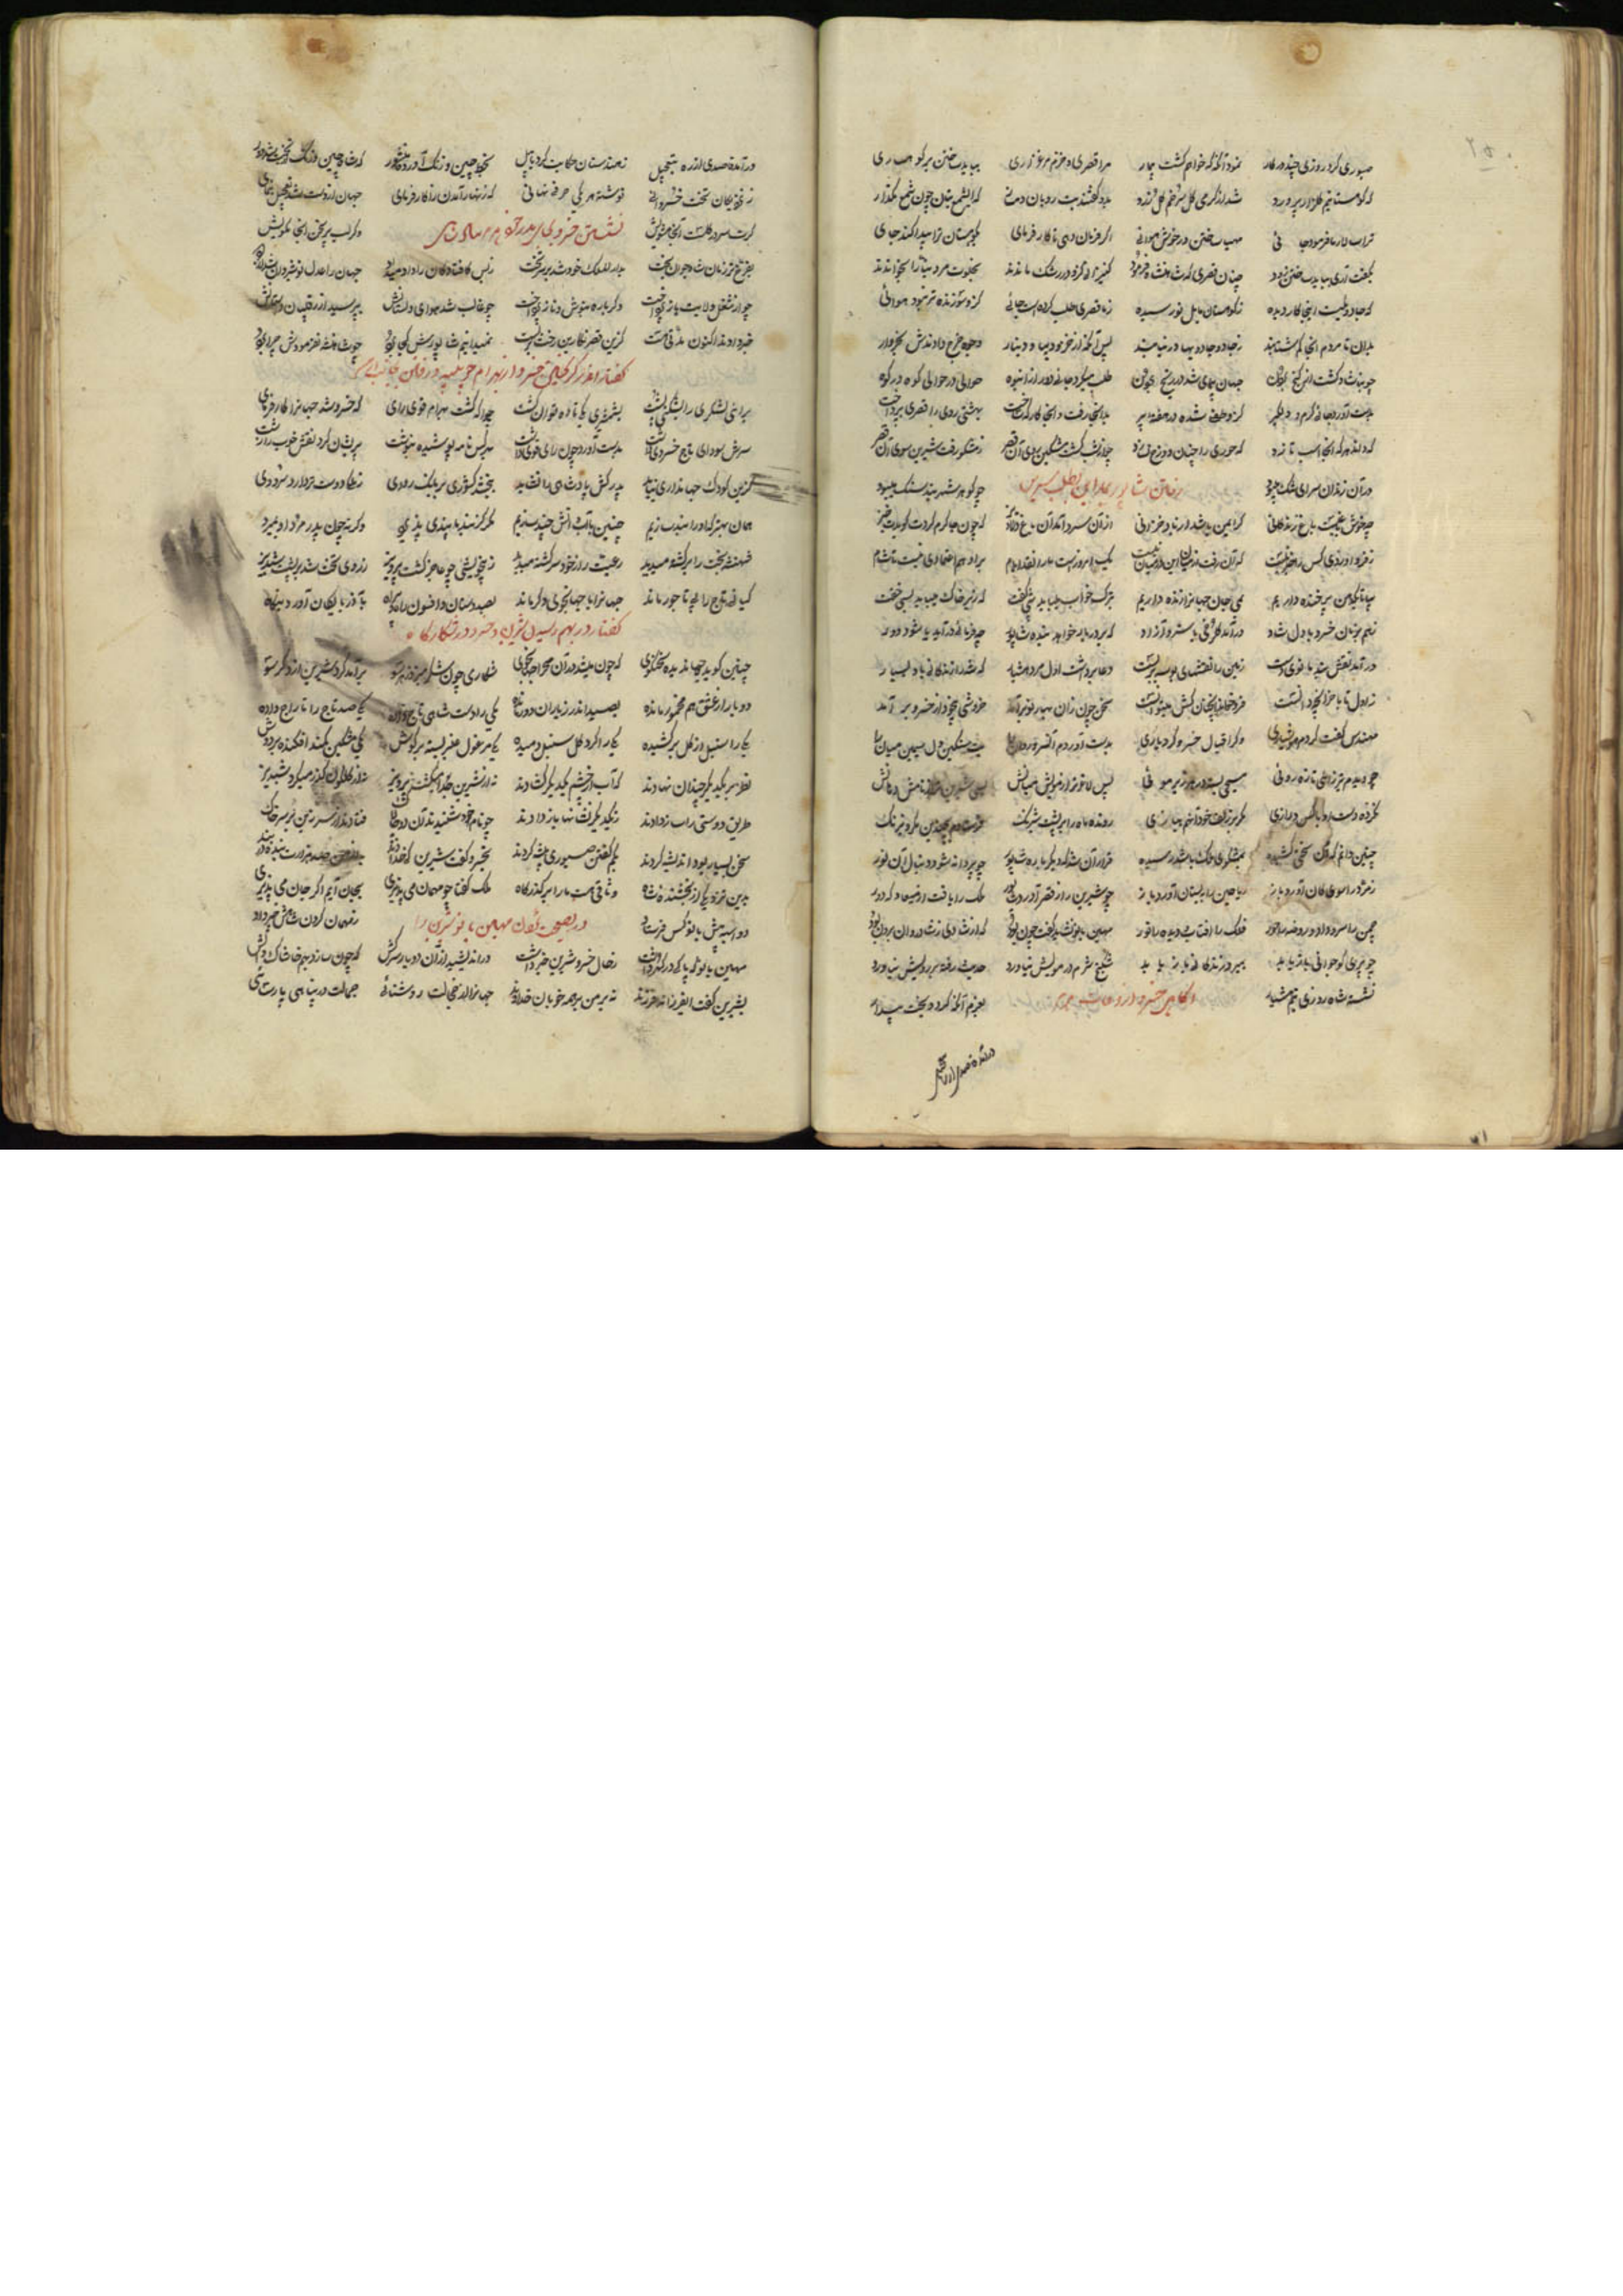 صبوری کرد روزی چند در کار نمود آنگه که خواهم گشت بیمار مرا قصری و خرم مرغزاری بباید ساختن بر کوهساری
که کوهستانیم گلزار پرورد شد از گرمی گل سرخم گل زرد بدو گفتند بت رویان دمساز که ای شمع بتان چون شمع مگداز
ترا سالار ما فرمود جائی مهیا ساختن در خوش هوائی اگر فرمان دهی تا کارفرمای بکوهستان ترا پیدا کند جای
بگفت آری بباید ساختن زود چنان قصری که شاهنشاه فرمود کنیزانی کزو در رشک ماندند بخلوت مرد بنا را بخواندند
که جادوئیست اینجا کار دیده ز کوهستان بابل نو رسیده ز ما قصری طلب کرده است جائی کزو سوزنده تر نبود هوائی
بدان تا مردم آنجا کم شتابند ز جادو جادوئیها درنیابند پس آنگه از خز و دیبا و دینار وجوه خرج دادندش بخروار
چو بنا شاد گشت از گنج بردن جهان پیمای شد در رنج بردن طلب میکرد جائی دور از انبوه حوالی در حوالی کوه در کوه
بدست آورد جائی گرم و دلگیر کزو طفلی شده در هفته پیر بدانجا رفت و آنجا کارگه ساخت بهشتی روی را قصری بپرداخت
که داند هر که آنجا اسب تازد که حوری را چنان دوزخ بسازد چو از شب گشت مشکین روی آن عصر ز مشکو رفت شیرین سوی آن قصر
در آن زندان سرای تنگ میبود رفتن شاپور بطلب شیرین چو گوهر شهربند سنگ میبود
چه خوش باغیست باغ زندگانی گر ایمن باشد از باد خزانی از آن سرد آمد آن باغ دلاویز که چون جا گرم کردی گویدت خیز
ز فردا و ز دی کس را خبر نیست که آن رفت از میان وین در میان نیست یک امروز است ما را نقد ایام برو هم اعتمادی نیست تا شام
بیا تا یکدهن پر خنده داریم بمی جان جهان را زنده داریم بترک خواب میباید شبی گفت که زیر خاک میباید بسی خفت
خسرو با دل شاد درآمد گلرخی با سرو آزاد که بر در بار خواهد بنده شاپور چه فرمائی درآید یا شود دور
درآمد نقش بند مانوی دست زمین را نقشهای بوسه پر بست دعا برداشت اول مرد هشیار که شه را زندگانی باد بسیار
ز اول تا باخر آنچه دانست فرو خواند آنچنان کش میتوانست سخن چون زان بهار نو برآمد خروشی بیخود از خسرو برآمد
مهندس گفت کردم هوشیاری دگر اقبال خسرو کرد یاری بدست آوردم آن سرو روان را بت سنگین دل سیمین میان را
چو دیدم تازه روئی مسیحی بسته در هر موئی پس لاغرتر از مویش میانش بسی شیرین تر از نامش دهانش
نکرده دست او با کس درازی مگر با زلف خود آنهم ببازی رونده ماه را بر پشت شبرنگ فرستادم بچندین مکر و نیرنگ
چنین دانم که آن سختی کشیده بمشکوی ملک باشد رسیده قرار آن شد که دیگر باره شاپور چو پروانه شود دنبال آن نور
زمرد را سوی کان آورد باز ریاحین را ببستان آورد باز چو شیرین را ز قصر آورد شاپور ملک را یافت از میعادگه دور
چمن را سرو داد و روضه را حور فلک را آفتاب و دیده را نور مهین بانو نشاید گفت چون بود که از شادی ز شادروان برون بود
چو پیری کو جوانی باز یابد بمیرد زندگانی باز یابد شکنج شرم در مویش نیاورد حدیث رفته بر رویش نیاورد
نشسته شاه روزی نیم هشیار آگاهی خسرو از بعزم آنکه گردد بخت بیدار
درآمد قاصدی از ره بتعجیل ز هندستان حکایت کرد با پیل بخط چین و زنگ آورد منشور که شاه چین و زنگ از تخت شد دور
ز نزدیکان تخت خسروانی نوشته هر یکی حرفی نهانی که زنهار آمدن را کار فرمای جهان از دست شد تعجیل بنمای
گرت سر در گلست آنجا مشویش نشستن خسرو بجای پدر وگر لب بر سخن آنجا مگویش
بفرخ تر زمان شاه جوان بخت بدار الملک خود شد بر سر تخت ز بس کافتادگان را داد میداد جهان را عدل نوشیروان شد از یاد
چو از شغل ولایت باز پرداخت دگر باره بنوش و ناز پرداخت چو غالب شد هوای دلستانش بپرسید از رقیبان داستانش
خبر دادند اکنون مدتی هست کزین قصر نگارین رخت بر بست نمیدانیم شاپورش کجا برد چو شاهنشه نفرمودش چرا برد
گفتار اندر گریختن خسرو از بهرام چوبینه و رفتن
براشی لشکری را بشکنی پشت بشمشیری یکی تا ده توان کشت چو آگه گشت بهرام قوی رای که خسرو شد جهان را کار فرمای
سرش سودای تاج خسروی داشت بدست آورد چون رای قوی داشت بهر کس نامه پوشیده بنوشت پریشان کرد نقش خوب را زشت
کزین کودک جهانداری نیاید پدر کش پادشاهی را نشاید ببخشد کشوری بر بانگ رودی ز ملکی دوست تر دارد سرودی
همان بهتر که او را بند سازیم چنین با آب و آتش چند سازیم مگر کز بند ما پندی پذیرد وگرنه چون پدر مرد او بمیرد
شهنشه بخت را سرگشته میدید رعیت را ز خود برگشته میدید ز بیخویشی چو عاجز گشت پرویز ز روی تخت شد بر پشت شبدیز
کیانی تاج را بی تاجور ماند جهان را با جهانجوئی دگر ماند بصد دستان و افسون زان بآذربایگان آورد بنگاه
گفتار در بهم رسیدن شیرین و خسرو در شکارگاه
چنین گوید جهان دیده سخنگوی که چون میشد در آن صحرا جهانجوی شکاری چون شکر میزد ز هر سو برآمد گرد شیرین از دگر سو
دو یار از عشق هم مخمور مانده بصید اندر ز یاران دور مانده یکی را دست شاهی تاج داده یکی صد تاج را تاراج داده
یکی را سنبل از گل بر کشیده یکی را گرد گل سنبل دمیده یکی مرغول عنبر بسته بر گوش یکی مشکین کمند افکنده بر دوش
نظر بر یکدیگر چندان نهادند که آب از چشم یکدیگر گشادند نه از شیرین جدا میگشت پرویز نه از گلگون گذر میکرد شبدیز
طریق دوستی را ساز دادند ز یکدیگر نشانها باز دادند چو نام خود شنیدند آن دو چالاک فتادند از سر زین بر سر خاک
سخن بسیار بود اندیشه کردند بکم گفتن صبوری پیشه کردند بخسرو گفت شیرین کای خداوند نه من چون من هزارت بنده در بند
درین نزدیکی از بخشنده شاه وثاقی هست ما را بر گذرگاه ملک گفتا چو مهمان می پذیری بجان آیم اگر جان می پذیری
دو اسبه پیش بانو کس فرستاد در نصیحت کردن مهین بانو شیرین را ز مهمان کردن شاهش خبر داد
مهین بانو که پاکی در گهر داشت ز حال خسرو و شیرین خبر داشت در اندیشید از آن دو یار سرکش که چون سازد بهم خاشاک و آتش
بشیرین گفت ای فرزانه فرزند نه بر من بر همه خوبان خداوند جهان را از جمالت روشنائی جمالت در پناه پارسائی